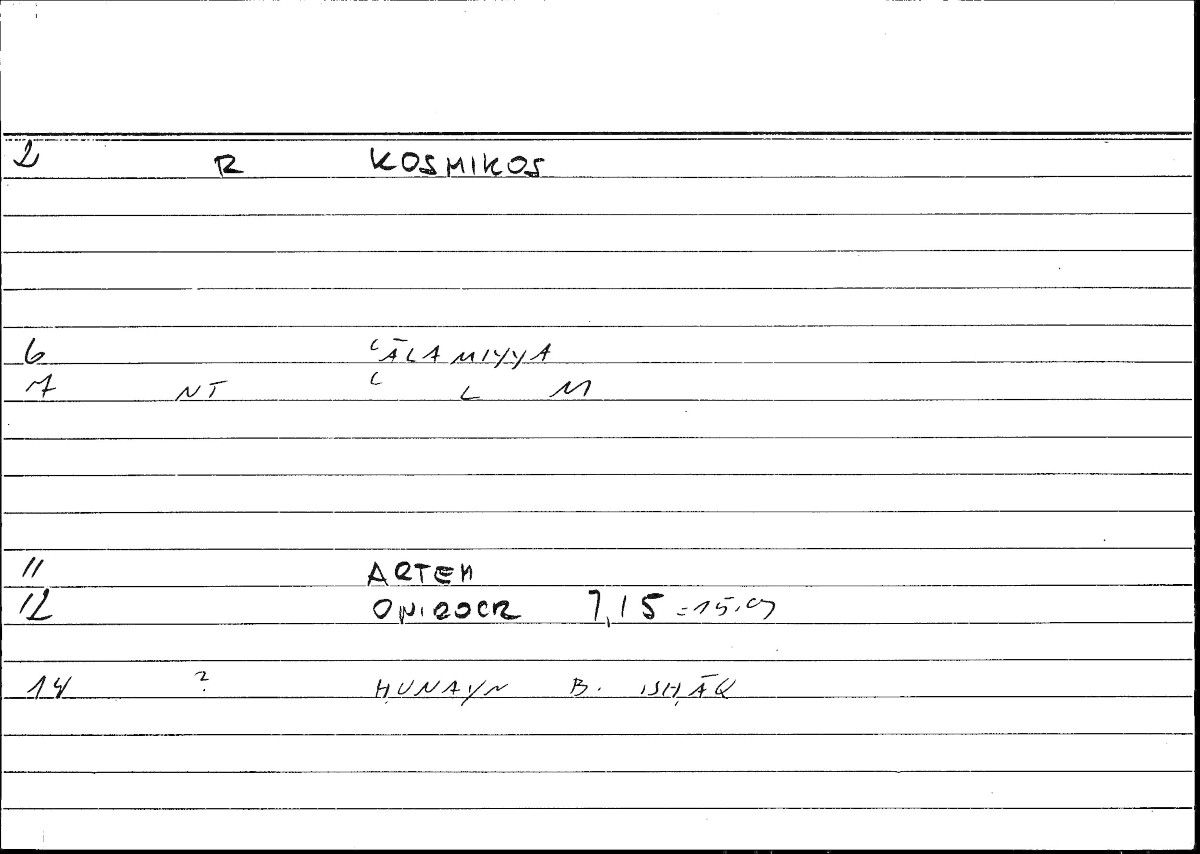 2 R KOSMIKOS
6 ʿĀLAMIYYA
7 NT ʿ L M
11 ARTEM
12 ONIROCR 7,15 = 15.9
14 ? ḤUNAYN B. ISḤĀQ